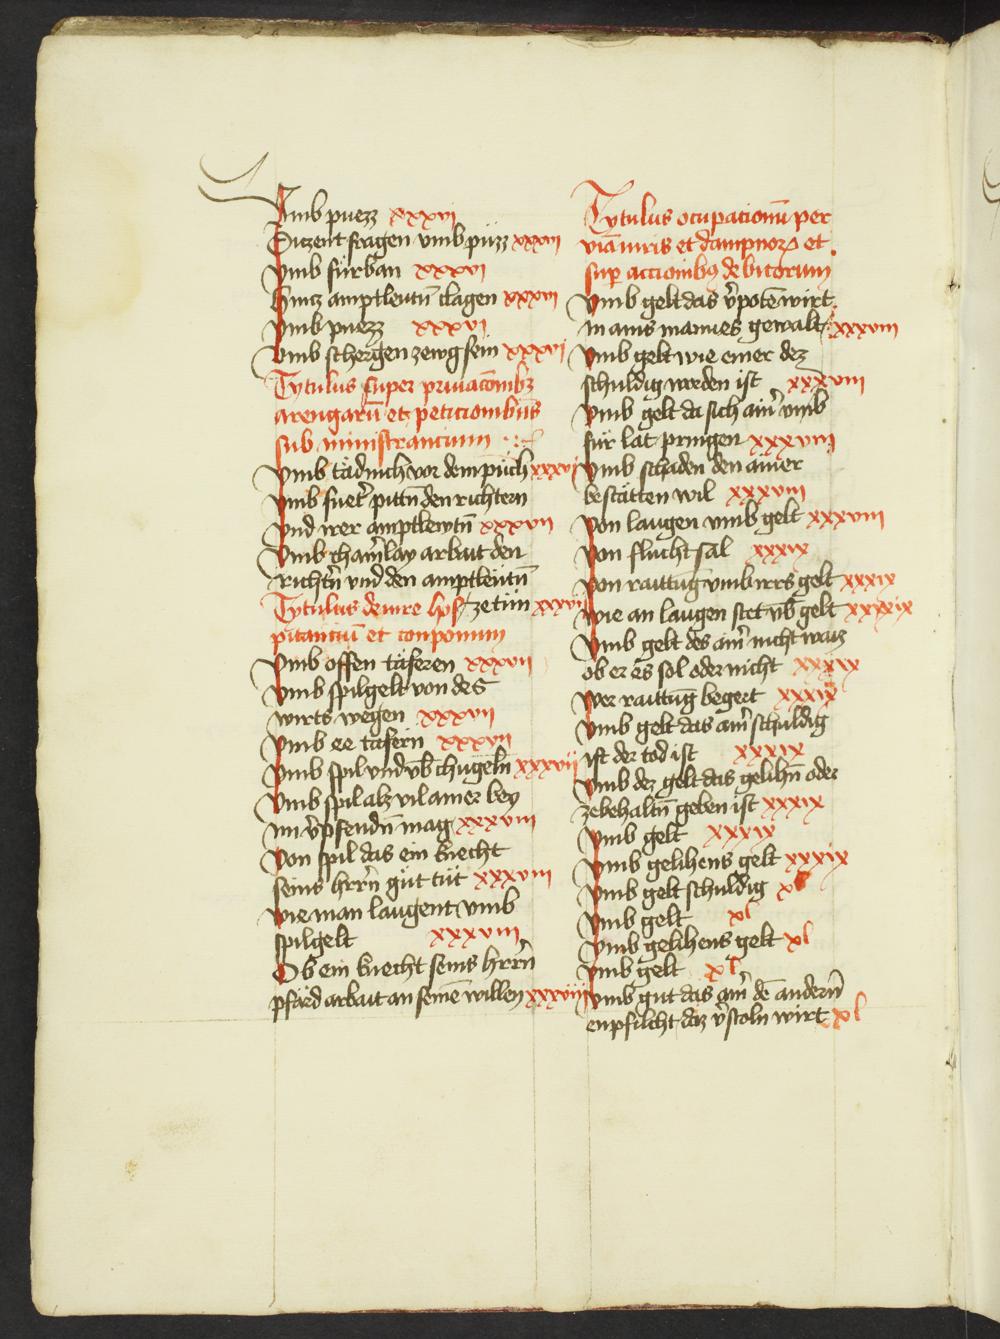 Umb puezz xxxvi
Diczent fragen vmb püzz xxxvi
Vmb fürban xxxvi
Hincz amptleutñ clagen xxxvi
Vmb puezz xxxvi
Vmb schergen zewg sein xxxvi
Tytulus super priuacōnibz
arengarū et peticionibus
sub ministrancium
Vmb tädinch vor dem püch xxxvi
Vmb fuer̃ puttñ den richtern
vnd irer amptlewtñ xxxvii
Vmb arbait den
richtr̃n vnd den amptleutñ
Tytulus de iure hosp zetim xxxvii
pitanciū et conponum
Vmb offen täferen xxxvii
Vmb spilgelt von des
wirts wegen xxxvii
Vmb ee täfern xxxvii
Vmb spil vnd vb̃ chugeln xxxvii
Vmb spil alz vil ainer bey
im v̄pfendñ mag xxxviii
Von spil das ein knecht
seins hrr̃n güt tüt xxxviii
wie man laugent vmb
spilgelt xxxviii
Ob ein knecht seins hrr̃n
pfärd arbait an seinē willen xxxviii
Tytulus ocupacionū per
viā iuris et dampnorꝝ et
sup̱ accionibꝫ debitorum
Vmb gelt das v̄poten wirt
in ains mannes gewalt xxxviii
Vmb gelt wie einer dez
schuldig worden ist xxxviii
Vmb gelt da sich ain̄ vmb
für lat pringen xxxviii
Vmb schaden den ainer
bestätten wil xxxviii
Von laugen vmb gelt xxxviii
Von flucht sal xxxix
Von raittūg vmb irrs gelt xxxix
wie an laugen stet vb̃ gelt xxxxix
Vmb gelt des ain̄ nicht waiz
ob er es sol oder nicht xxxix
wer raittūg begert xxxix
Vmb gelt das ain̄ schuldig
ist der tod ist xxxix
Vmb dez gelt das gelihñ oder
zebehaltñ geben ist xxxix
Vmb gelt xxxix
Vmb gelihens gelt xxxix
Vmb gelt schuldig xl
Vmb gelt xl
Vmb gelihens gelt xl
Vmb gelt xl
Vmb gut das ain̄ dē andern̄
enpfilcht daz v̄stoln wirt xl